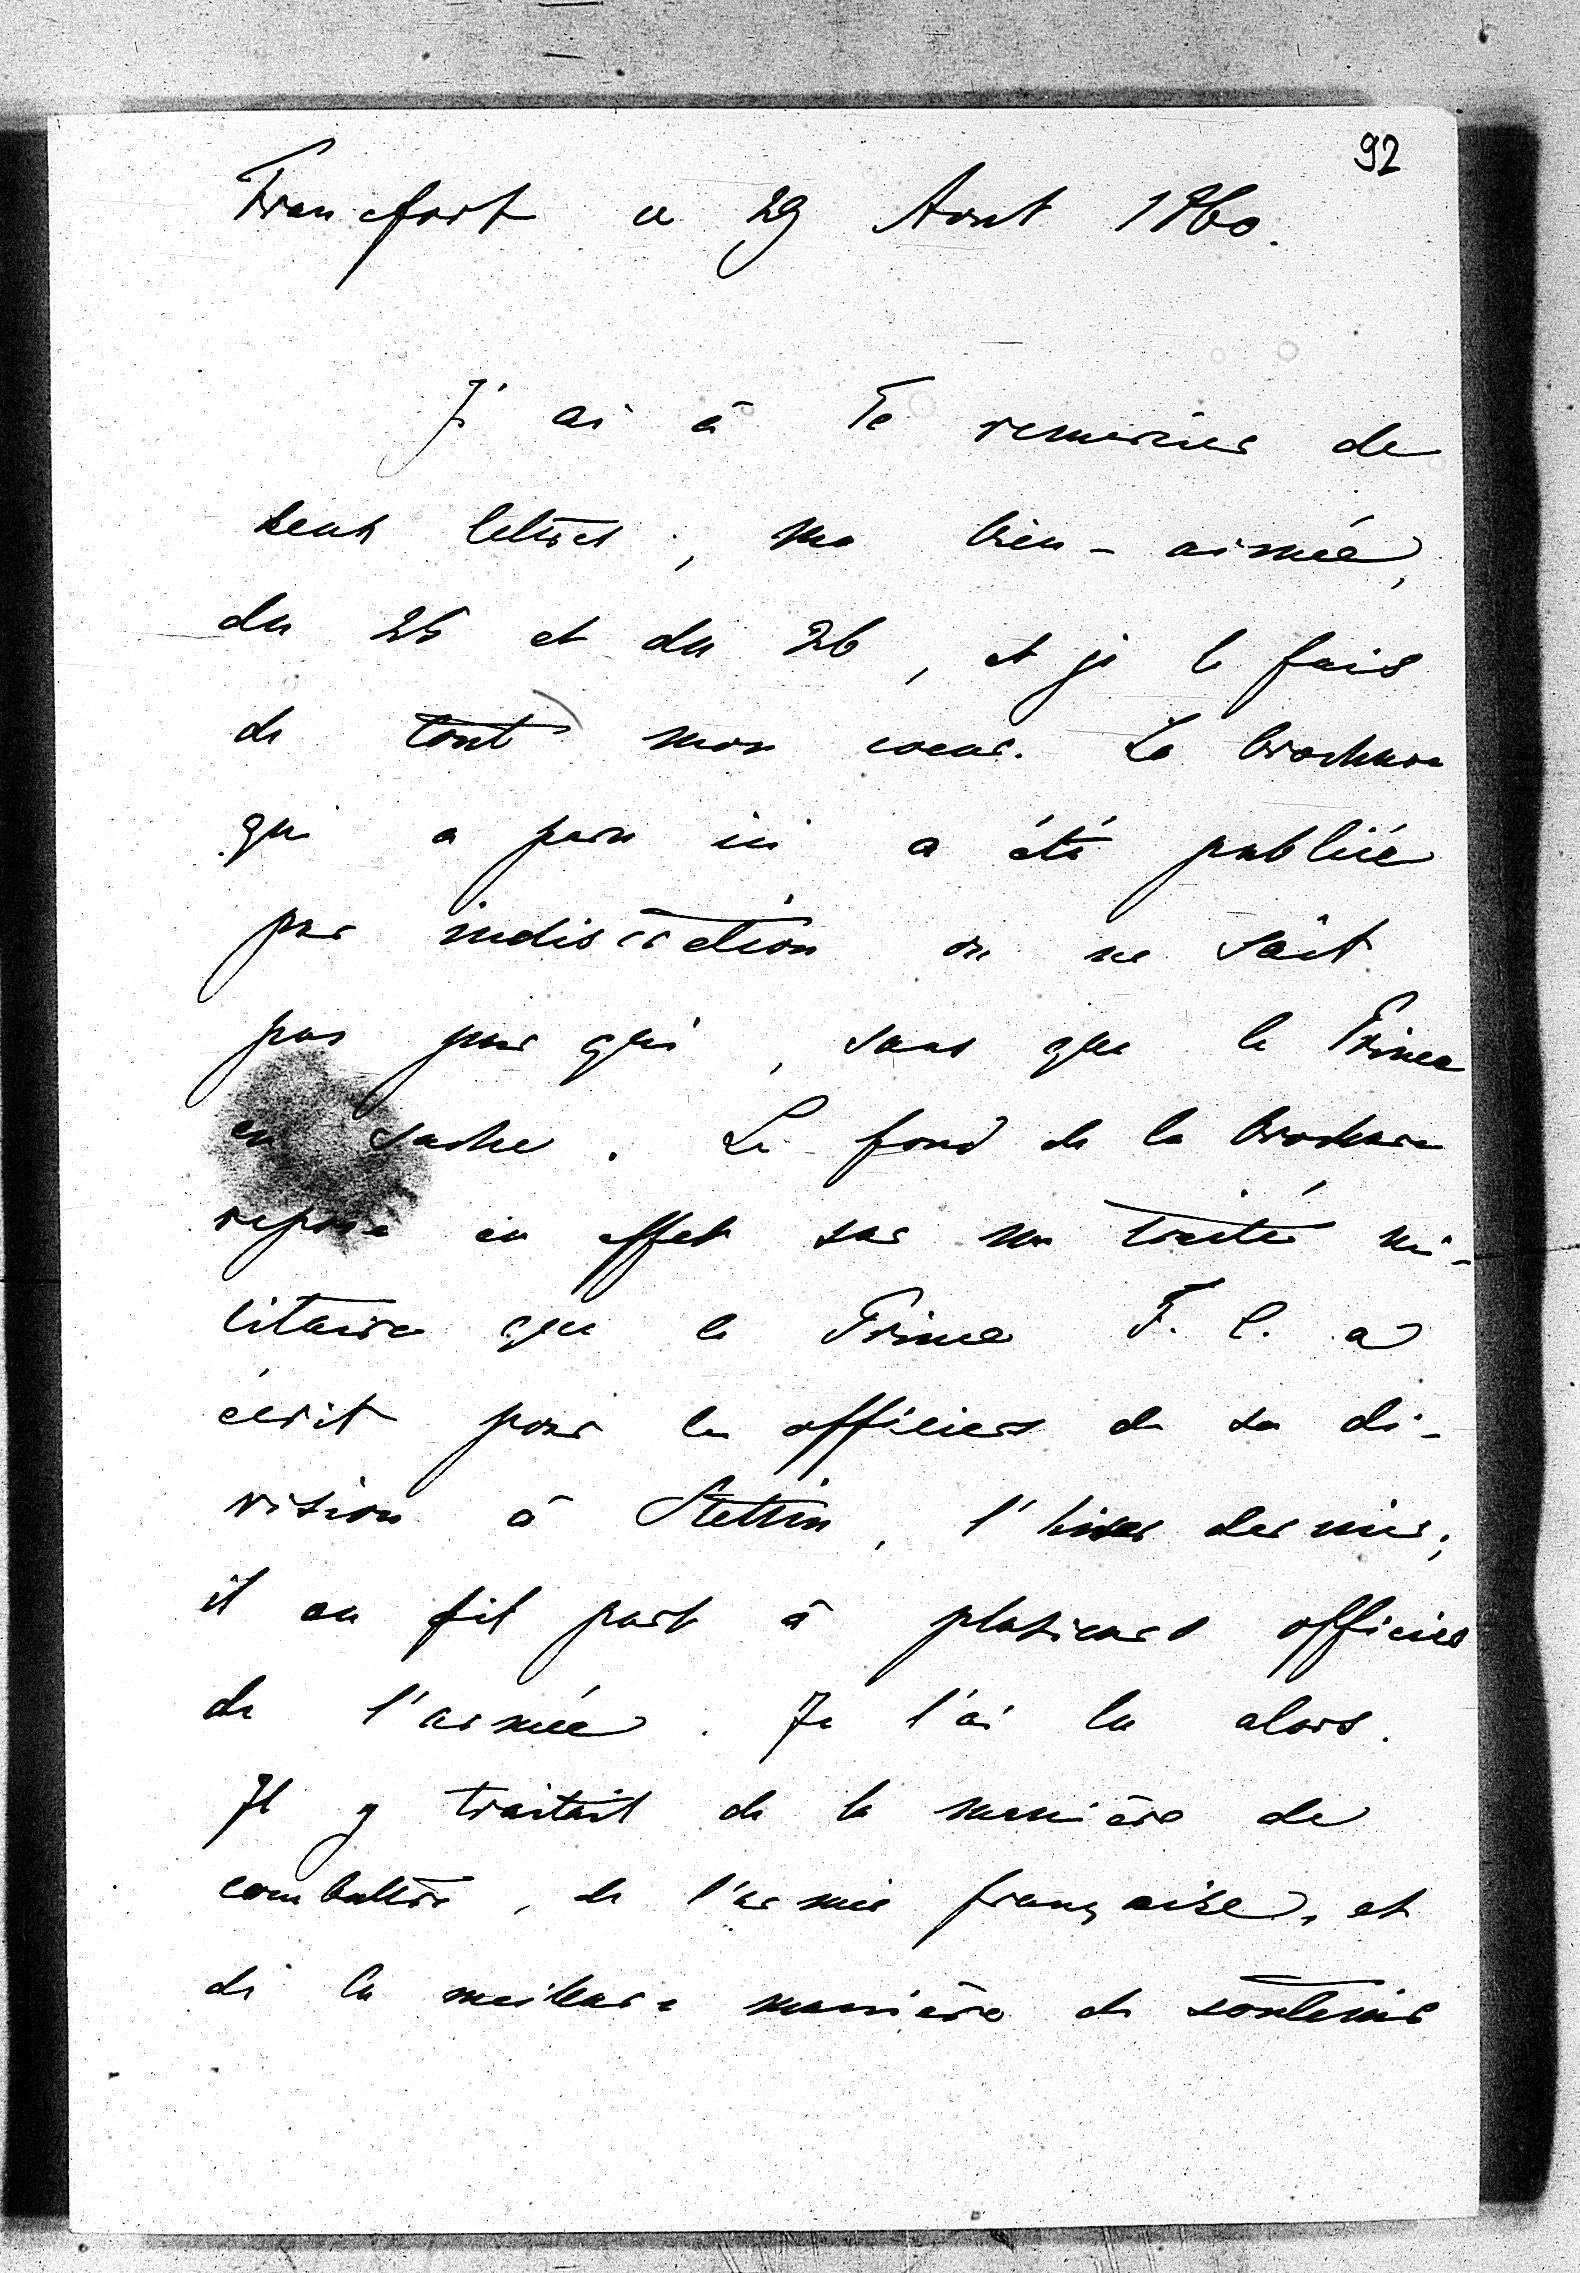 92
Francfort ce 29 Aout 1860.
J'ai à Te remercier de
deux lettres, ma bien-aimée,
du 25 et du 26, et je le fais
de tout mon coeur. La brochure
qui a paru ici a été publiée
par indiscrétion on ne sait
pas par qui, sans que le Prince
en sache. Le fond de la brochure
repose en effet sur un traité mi-
litaire que le Prince F. C. a
écrit pour les officiers de sa di-
vision à Stettin, l'hiver dernier;
il en fit part à plusieurs officiers
de l'armée. Je l'ai lu alors.
Il y traitait de la manière de
combattre, de l'armée française, et
de la meilleure manière de soutenir